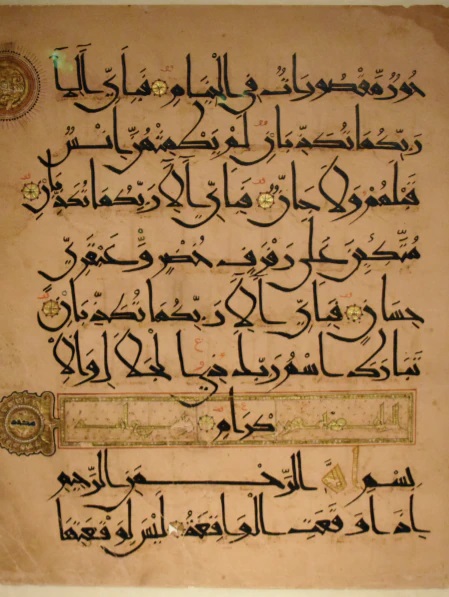 حُورٌ مَّقْصُورَاتٌ فِي الْخِيَامِ فَبِأَيِّ آلَاءِ
رَبِّكُمَا تُكَذِّبَانِ لَمْ يَطْمِثْهُنَّ إِنْسٌ
قَبْلَهُمْ وَلَا جَانٌّ فَبِأَيِّ آلَاءِ رَبِّكُمَا تُكَذِّبَانِ
مُتَّكِئِينَ عَلَى رَفْرَفٍ خُضْرٍ وَّعَبْقَرِيٍّ
حِسَانٍ فَبِأَيِّ آلَاءِ رَبِّكُمَا تُكَذِّبَانِ
تَبَارَكَ اسْمُ رَبِّكَ ذِي الْجَلَالِ وَالْإِ
كْرَامِ
بِسْمِ اللَّهِ الرَّحْمَنِ الرَّحِيمِ
إِذَا وَقَعَتِ الْوَاقِعَةُ لَيْسَ لِوَقْعَتِهَا